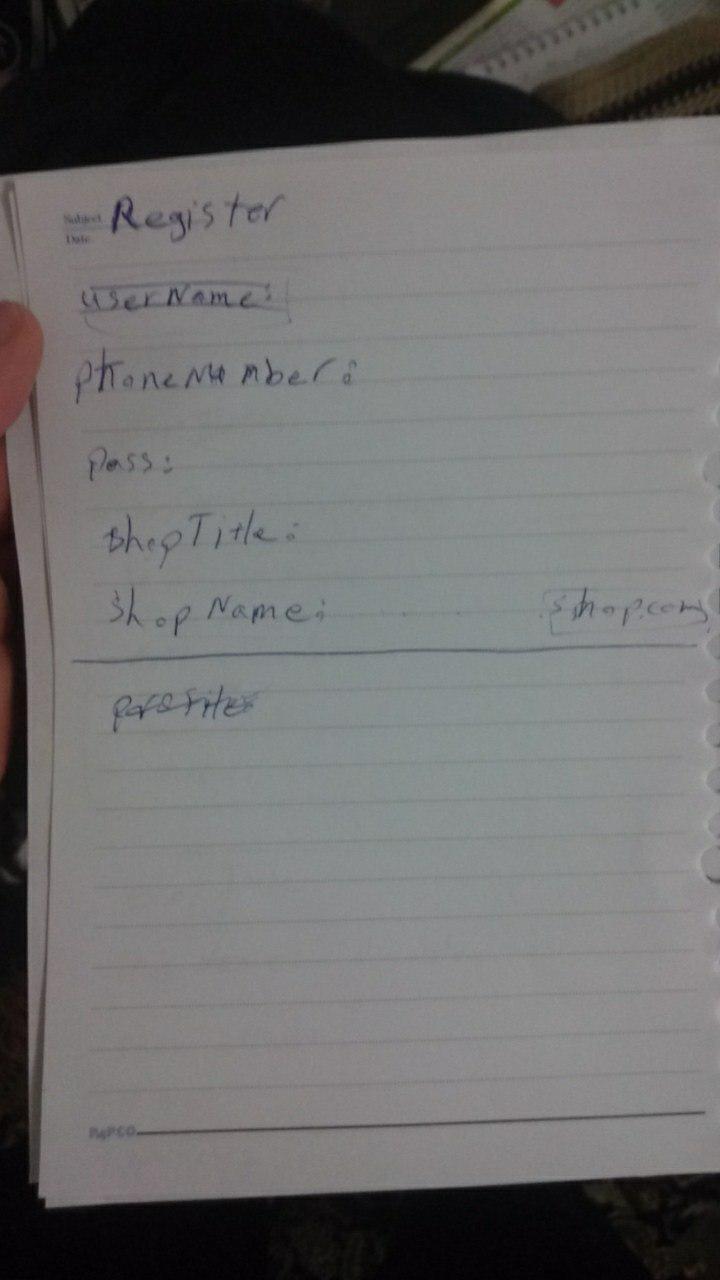 Subject
Register
Date
userName:
phoneNumber:
pass:
shopTitle:
shopName: shop.com
PAPCO